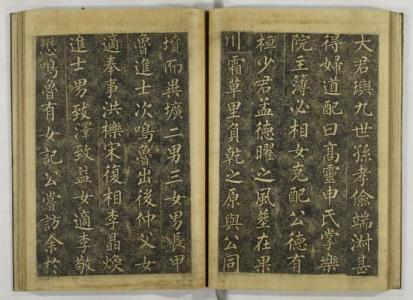 大君璵九世孫孝儉端淑甚
得婦道配曰高靈申氏掌樂
院主簿必相女克配公德有
桓少君孟德曜之風塋在果
川霜草里負乾之原與公同
墳而異壙二男三女男長甲
魯進士次鳴魯出後仲父女
適奉事洪櫟宋復相李晶煥
進士男致澤致益女適李敬
懋鳴魯有女記公嘗訪余於